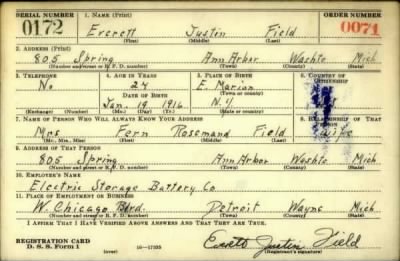 SERIAL NUMBER 1. NAME (Print) ORDER NUMBER
0172 Everett Justin Field 0071
(First) (Middle) (Last)
2. ADDRESS (Print)
805 Spring Ann Arbor Washte Mich
(Number and street or R. F. D. number) (Town) (County) (State)
3. TELEPHONE 4. AGE IN YEARS 5. PLACE OF BIRTH 6. COUNTRY OF CITIZENSHIP
No 24 E. Marion
DATE OF BIRTH (Town or county)
Jan. 19 1916 N.Y.
(Exchange) (Number) (Mo.) (Day) (Yr.) (State or country)
7. NAME OF PERSON WHO WILL ALWAYS KNOW YOUR ADDRESS 8. RELATIONSHIP OF THAT PERSON
Mrs Fern Rosemand Field wife
(Mr., Mrs., Miss) (First) (Middle) (Last)
9. ADDRESS OF THAT PERSON
805 Spring Ann Arbor Washte Mich
(Number and street or R. F. D. number) (Town) (County) (State)
10. EMPLOYER'S NAME
Electric Storage Battery Co
11. PLACE OF EMPLOYMENT OR BUSINESS
W. Chicago Blvd. Detroit Wayne Mich.
(Number and street or R. F. D. number) (Town) (County) (State)
I AFFIRM THAT I HAVE VERIFIED ABOVE ANSWERS AND THAT THEY ARE TRUE.
REGISTRATION CARD
D. S. S. Form 1 (over) 16—17105 Everett Justin Field
(Registrant's signature)